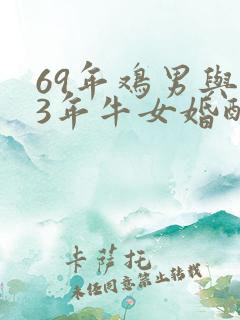 69年鸡男與
3年牛女婚配
卡薩托
未经同意禁止转载